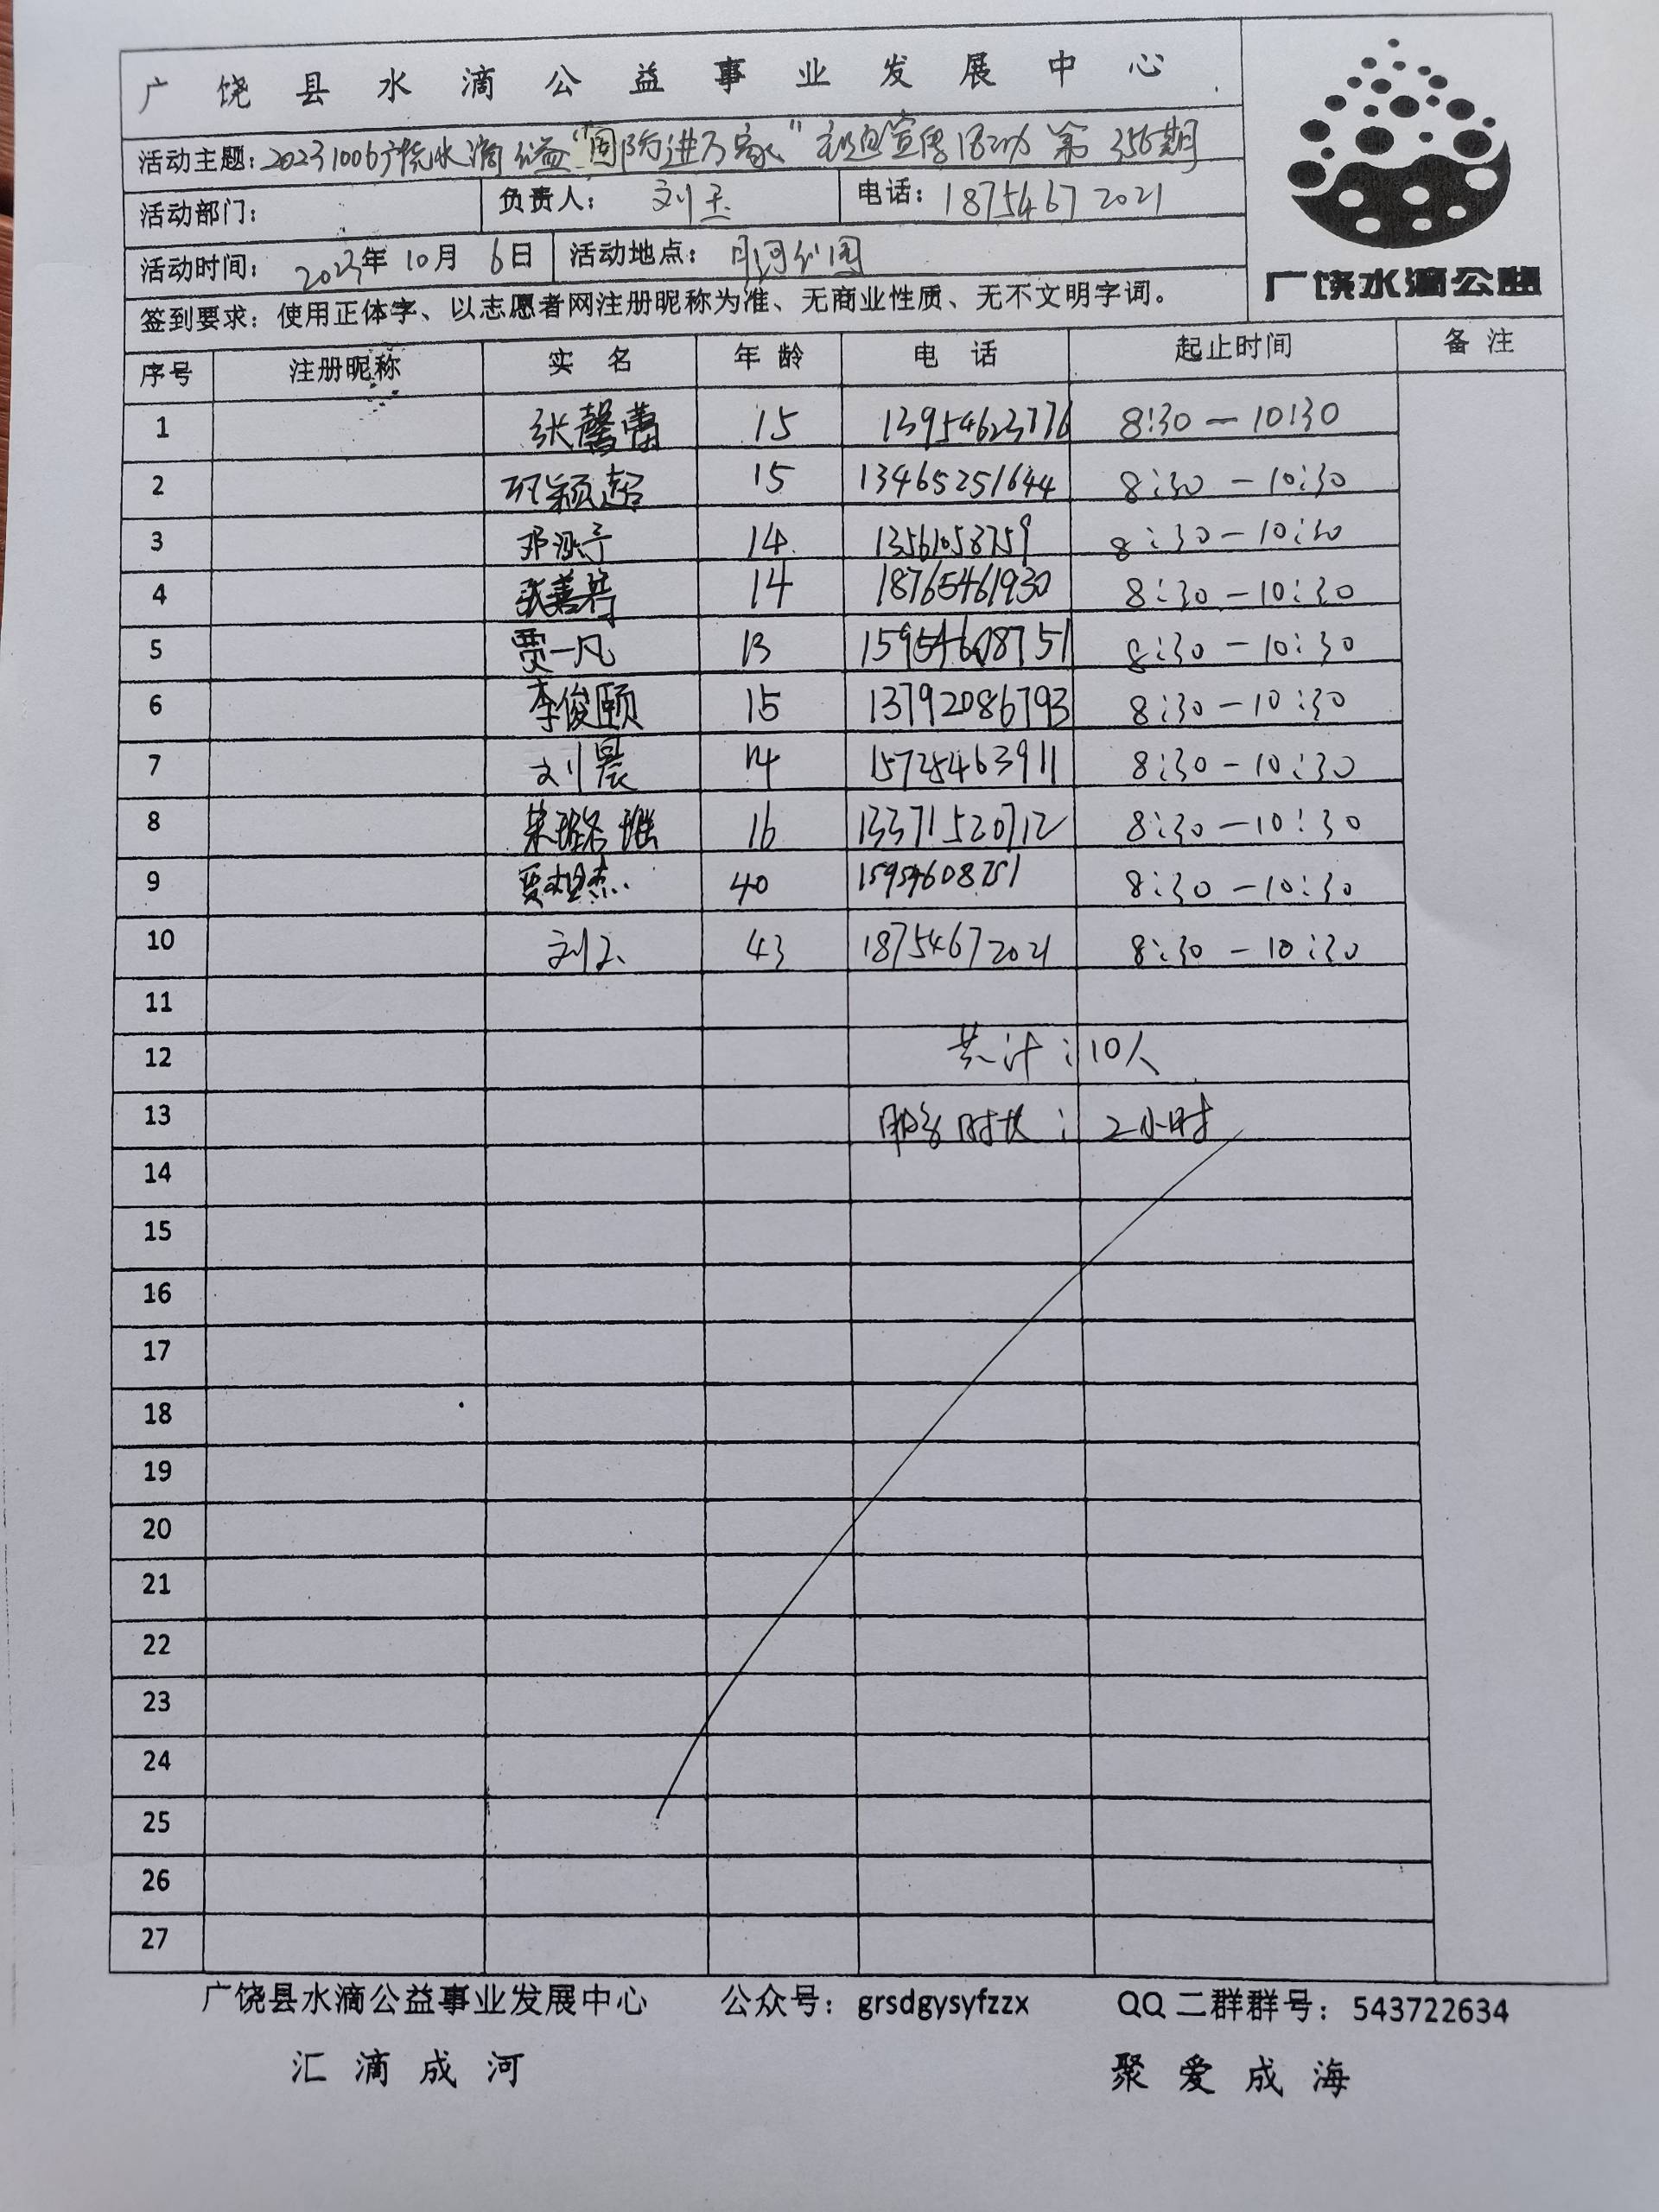 广饶县水滴公益事业发展中心
活动主题：20231006广饶水滴公益"国防进万家"主题宣传活动 第356期
活动部门： 负责人：刘玉 电话：18754672021
活动时间：2023年10月6日 活动地点：月河公园
签到要求：使用正体字、以志愿者网注册昵称为准、无商业性质、无不文明字词。
广饶水滴公益
序号 注册昵称 实名 年龄 电话 起止时间 备注
1 张馨 15 13954623776 8:30—10:30
2 颖超 15 13465251644 8:30—10:30
3 邓 14 13561053759 8:30—10:30
4 张善 14 18765461930 8:30—10:30
5 贾一凡 13 15954608751 8:30—10:30
6 李俊颐 15 13792086793 8:30—10:30
7 刘晨 14 15725463911 8:30—10:30
8 16 13371520712 8:30—10:30
9 贾杰 40 15954608751 8:30—10:30
10 刘玉 43 18754672021 8:30—10:30
11
12 共计：10人
13 服务时长：2小时
14
15
16
17
18
19
20
21
22
23
24
25
26
27
广饶县水滴公益事业发展中心 公众号：grsdgysyfzzx QQ二群群号：543722634
汇滴成河 聚爱成海